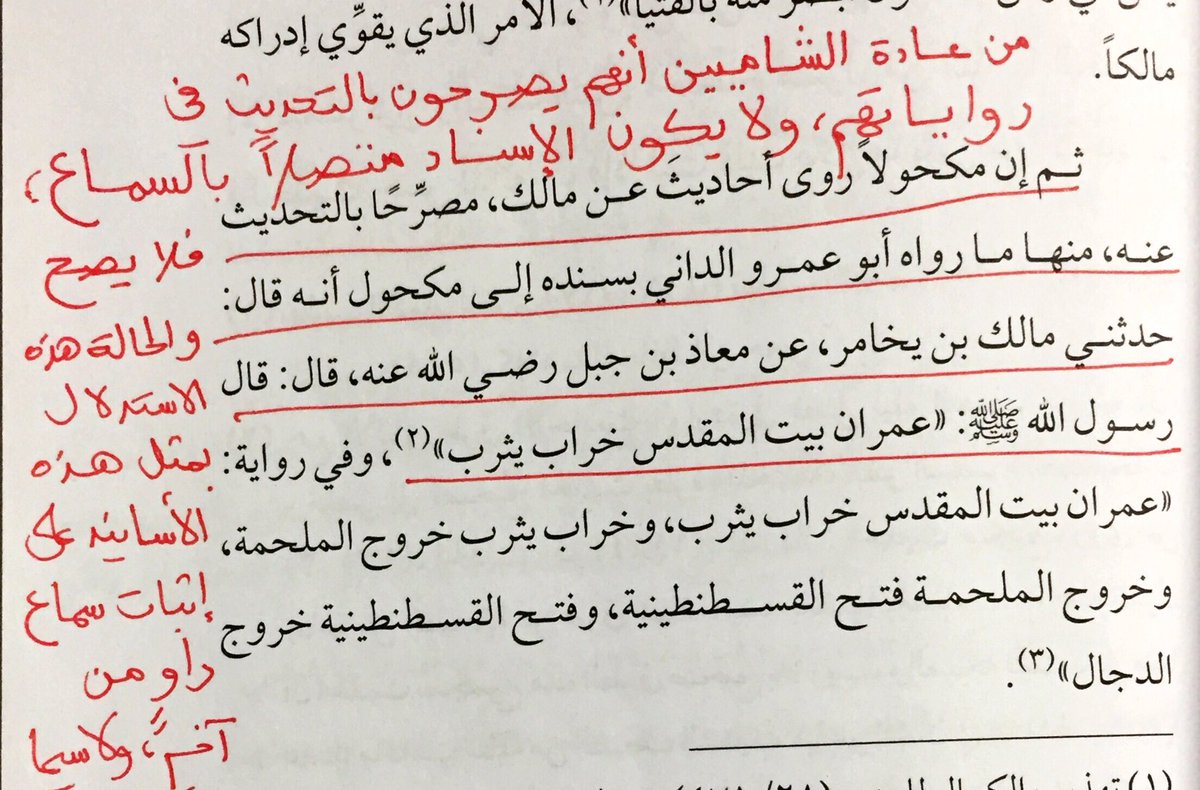 بالفتيا»(١)، الأمر الذي يقوِّي إدراكه
مالكاً.
من عادة الشاميين أنهم يصرحون بالتحديث في
رواياتهم، ولا يكون الإسناد متصلاً بالسماع،
ثم إن مكحولاً روى أحاديثَ عن مالك، مصرِّحًا بالتحديث
عنه، منها ما رواه أبو عمرو الداني بسنده إلى مكحول أنه قال:
حدثني مالك بن يخامر، عن معاذ بن جبل رضي الله عنه، قال: قال
رسول الله ﷺ: «عمران بيت المقدس خراب يثرب»(٢)، وفي رواية:
«عمران بيت المقدس خراب يثرب، وخراب يثرب خروج الملحمة،
وخروج الملحمة فتح القسطنطينية، وفتح القسطنطينية خروج
الدجال»(٣).
فلا يصح
والحالة هذه
الاستدلال
بمثل هذه
الأسانيد على
إثبات سماع
راوٍ من
آخر، ولاسيما